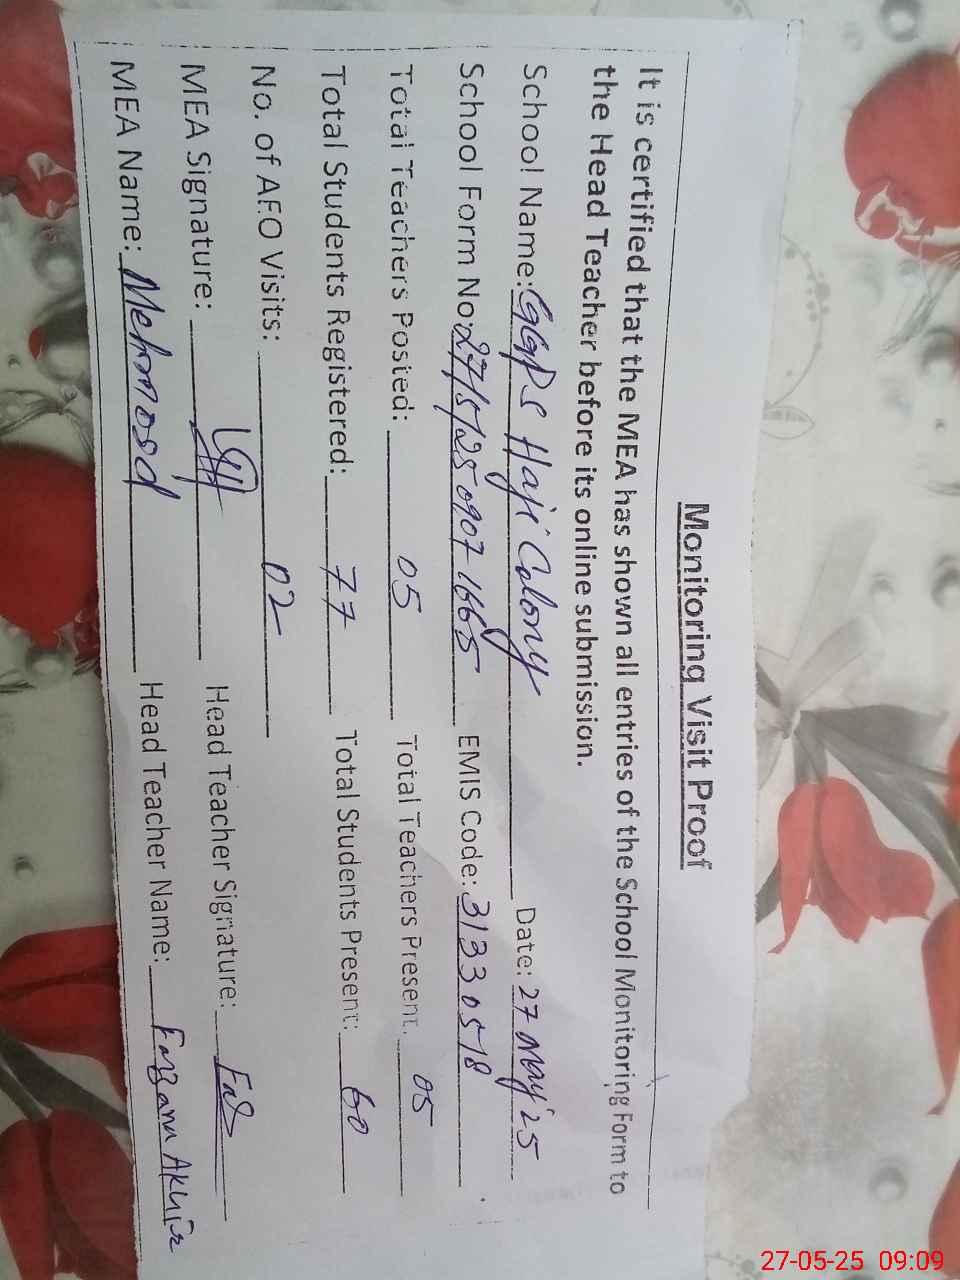 Monitoring Visit Proof
It is certified that the MEA has shown all entries of the School Monitoring Form to
the Head Teacher before its online submission.
School Name: GGPS Haji Colony Date: 27 May 25
School Form No: 27/5/25 0907 1665 EMIS Code: 31330518
Total Teachers Posted: 05 Total Teachers Present: 05
Total Students Registered: 77 Total Students Present: 60
No. of AEO Visits: 02
MEA Signature: Head Teacher Signature:
MEA Name: Mehmood Head Teacher Name: Farzana Akhtar
27-05-25 09:09